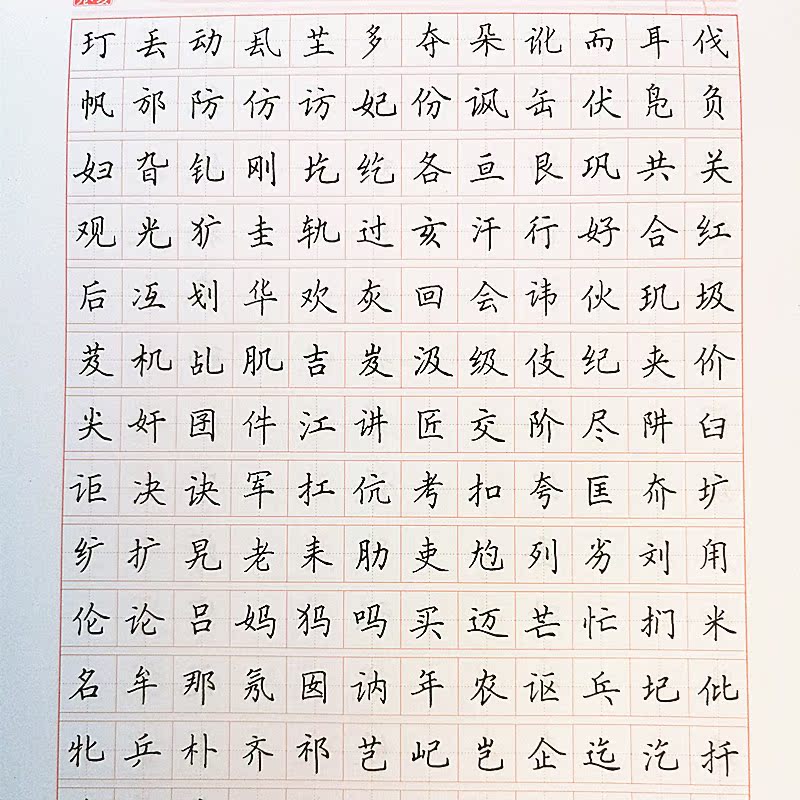 玎丢动芏多夺朵讹而耳伐
帆邡防仿访妃份讽缶伏凫负
妇旮钆刚圪纥各亘艮巩共关
观光犷圭轨过亥汗行好合红
后冱划华欢灰回会讳伙玑圾
芨机乩肌吉岌汲级伎纪夹价
尖奸囝件江讲匠交阶尽阱臼
讵决诀军扛伉考扣夸匡夼圹
纩扩旯老耒肋吏尥列劣刘甪
伦论吕妈犸吗买迈芒忙扪米
名牟那氖囡讷年农讴乓圮仳
牝乒朴齐祁芑屺岂企迄汔扦